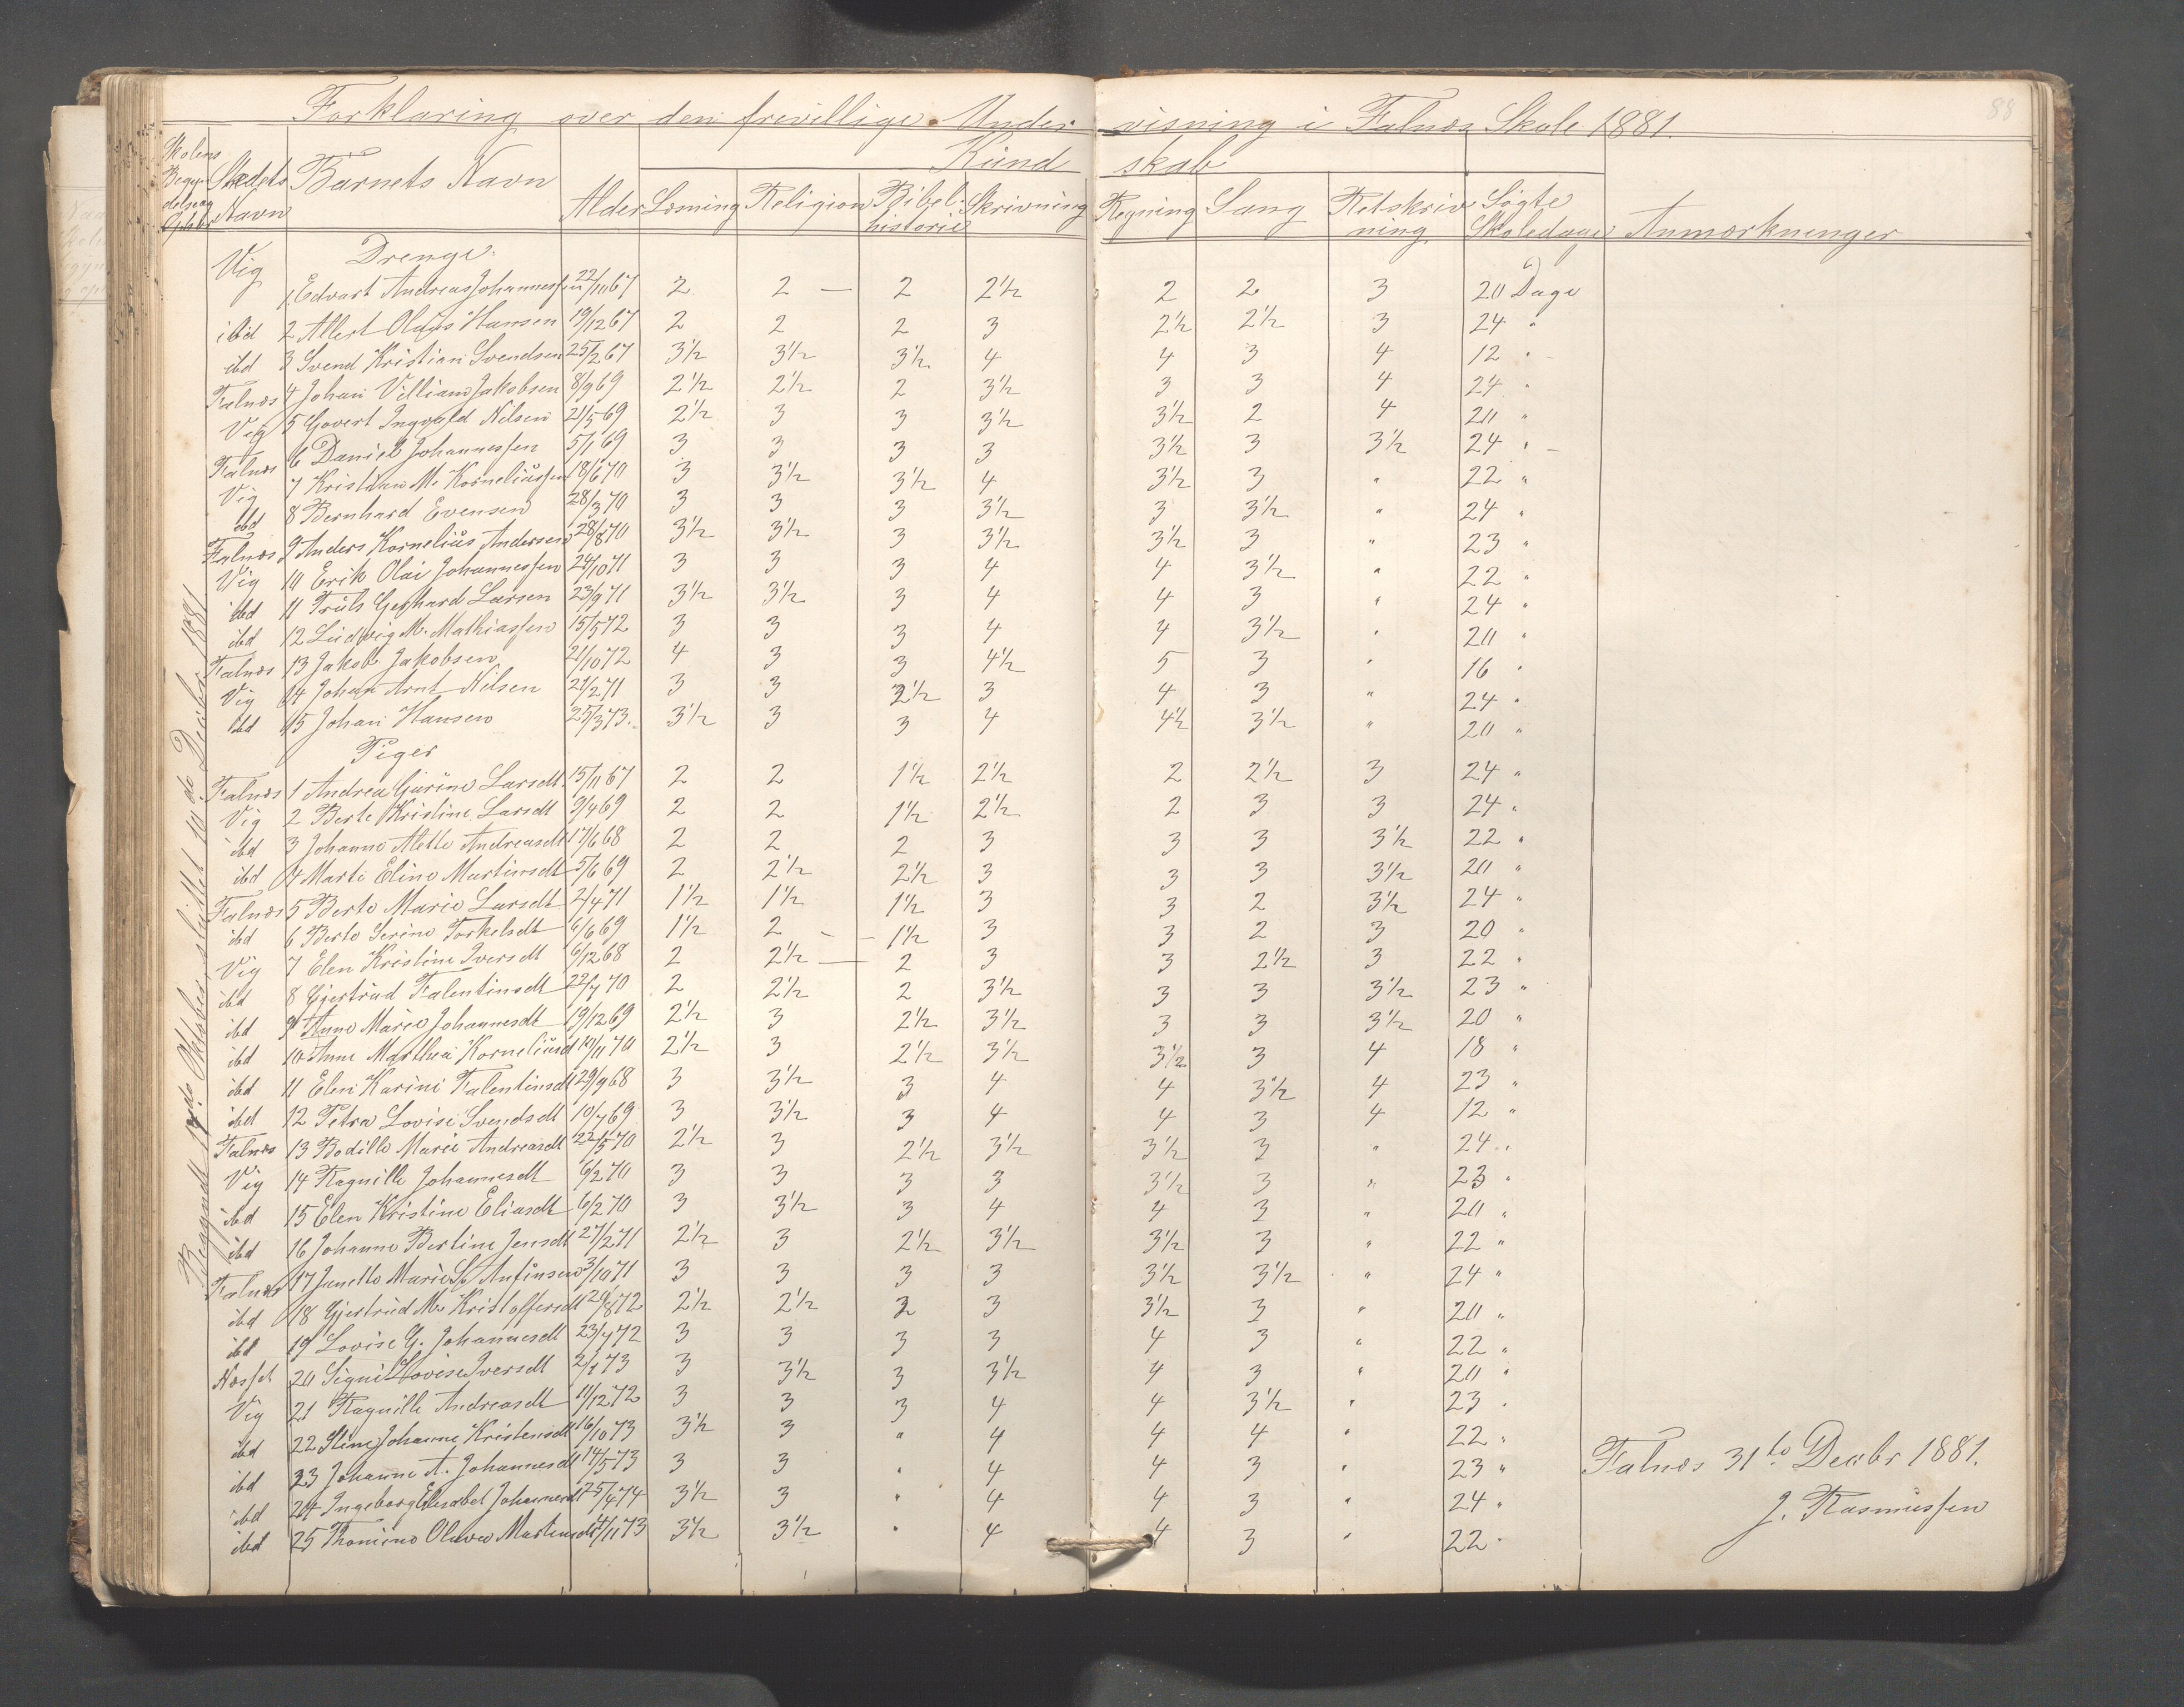 88
Forklaring over den frivillige Undervisning i Falnæs Skole 1881.
Skolens Begyndelse og Ophør | Stedets Navn | Barnets Navn | Alder | Kundskab | Søgte Skoledage | Anmærkninger
Læsning | Religion | Bibelhistorie | Skrivning | Regning | Sang | Retskrivning
Begyndt 17de Oktober sluttet 10de Decebr 1881
Drenge.
Vig 1 Edvart Andreas Johannessen 22/10 67 2 2 – 2 2½ 2 2 3 20 Dage
ibid 2 Allert Olaus Hansen 19/12 67 2 2 2 3 2½ 2½ 3 24 "
ibd 3 Svend Kristian Svendsen 25/2 67 3½ 3½ 3½ 4 4 3 4 12 "
Falnæs 4 Johan Villiam Jakobsen 8/9 69 2½ 2½ 2 3½ 3 3 4 24 "
Vig 5 Govert Ingvald Nilsen 21/5 69 2½ 3 3 3½ 3½ 2 4 20 "
Falnæs 6 Daniel Johannessen 5/1 69 3 3 3 3 3½ 3 3½ 24 "
Vig 7 Kristian M. Korneliussen 18/6 70 3 3½ 3½ 4 3½ 3 " 22 "
ibd 8 Bernhard Evensen 28/3 70 3 3 3 3½ 3 3½ " 24 "
Falnæs 9 Anders Kornelius Andersen 28/8 70 3½ 3½ 3 3½ 3½ 3 " 23 "
Vig 10 Erik Olai Johannessen 24/10 71 3 3 3 4 4 3½ " 22 "
ibd 11 Truls Gerhard Larsen 23/9 71 3½ 3½ 3 4 4 3 " 24 "
ibd 12 Ludvig M. Mathiassen 15/5 72 3 3 3 4 4 3½ " 20 "
Falnæs 13 Jakob Jakobsen 21/10 72 4 3 3 4½ 5 3 " 16 "
Vig 14 Johan Arnt Nilsen 21/2 71 3 3 2½ 3 4 3 " 24 "
ibd 15 Johan Hansen 25/3 73. 3½ 3 3 4 4½ 3½ " 20 "
Piger
Falnæs 1 Andrea Gurine Larsdt 15/11 67 2 2 1½ 2½ 2 2½ 3 24 "
Vig 2 Berte Kristine Larsdt 9/4 69 2 2 1½ 2½ 2 3 3 24 "
ibd 3 Johanne Alette Andreasdt 17/6 68 2 2 2 3 3 3 3½ 22 "
ibd 4 Marte Eline Martinsdt 5/6 69 2 2½ 2½ 3 3 3 3½ 20 "
Falnæs 5 Berte Marie Larsdt 2/4 71 1½ 1½ 1½ 3 3 2 3½ 24 "
ibd 6 Berte Serine Torkelsdt 6/6 69 1½ 2 – 1½ 3 3 2 3 20 "
Vig 7 Elen Kristine Iversdt 6/12 68 2 2½ – 2 3 3 2½ 3 22 "
ibd 8 Gjertrud Falentinsdt 22/7 70 2 2½ 2 3½ 3 3 3½ 23 "
ibd 9 Anne Marie Johannesdt 19/12 69 2½ 3 2½ 3½ 3 3 3½ 20 "
ibd 10 Anne Marthea Korneliusd 10/11 70 2½ 3 2½ 3½ 3½ 3 4 18 "
ibd 11 Elen Karine Falentinsdt 29/9 68 3 3½ 3 4 4 3½ 4 23 "
ibd 12 Petra Lovise Svendsdt 10/7 69 3 3½ 3 4 4 3 4 12 "
Falnæs 13 Bodille Marie Andreasdt 22/5 70 2½ 3 2½ 3½ 3½ 3 " 24 "
Vig 14 Ragnille Johannesdt 6/2 70 3 3 3 3 3½ 3 " 23 "
ibd 15 Elen Kristine Eliasdt 6/2 70 3 3½ 3 4 4 3 " 20 "
ibd 16 Johanne Bertine Jensdt 27/2 71 2½ 3 2½ 3½ 3½ 3 " 22 "
Falnæs 17 Janette Marie S. Anfinsen 3/10 71 3 3 3 3 3½ 3½ " 24 "
ibd 18 Gjertrud M. Kristoffersdt 20/8 72 2½ 2½ 2 3 3½ 3 " 20 "
ibd 19 Lovise G. Johannesdt 23/7 72 3 3 3 3 4 3 " 22 "
Næsset 20 Signi Lovise Iversdt 2/1 73 3 3½ 3 3½ 4 3 " 20 "
Vig 21 Ragnille Andreasdt 11/12 72 3 3 3 4 4 3½ " 23 "
ibd 22 Stine Johanne Kristensdt 16/10 73 3½ 3 " 4 4 4 " 22 "
ibd 23 Johanne A. Johannesdt 14/5 73 3 3 " 4 4 3 " 23 "
ibd 24 Ingeborg Elisabet Johannesdt 25/4 74 3½ 3 " 4 4 3 " 24 "
ibd 25 Thomine Olava Martinsdt 4/11 73 3½ 3½ " 4 4 3 " 22 "
Falnæs 31te Decbr 1881.
J. Rasmussen